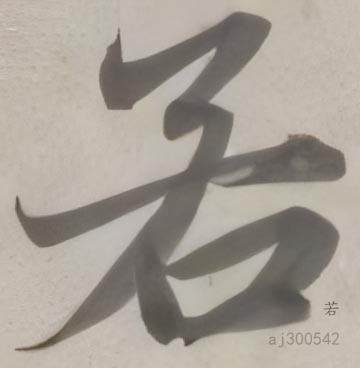 若
若
aj300542